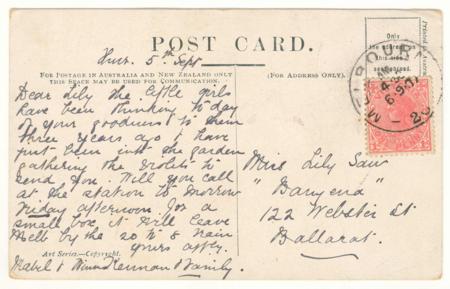 POST CARD.
Thur. 5th Sept
FOR POSTAGE IN AUSTRALIA AND NEW ZEALAND ONLY
THIS SPACE MAY BE USED FOR COMMUNICATION.
(FOR ADDRESS ONLY).
Dear Lily the little girls
have been thinking to day
of your goodness to them
three years ago I have
just been into the garden
gathering the violets to
send you. Will you call
at the station to morrow
Friday afternoon for a
small box, it will leave
Melb by the 20 to 8 train
yours affly.
Mabel &
Family
Art Series.—Copyright.
Only
the address on
this side
Printed in
MELBOURNE
Miss Lily Saw
122 Webster St
Ballarat.